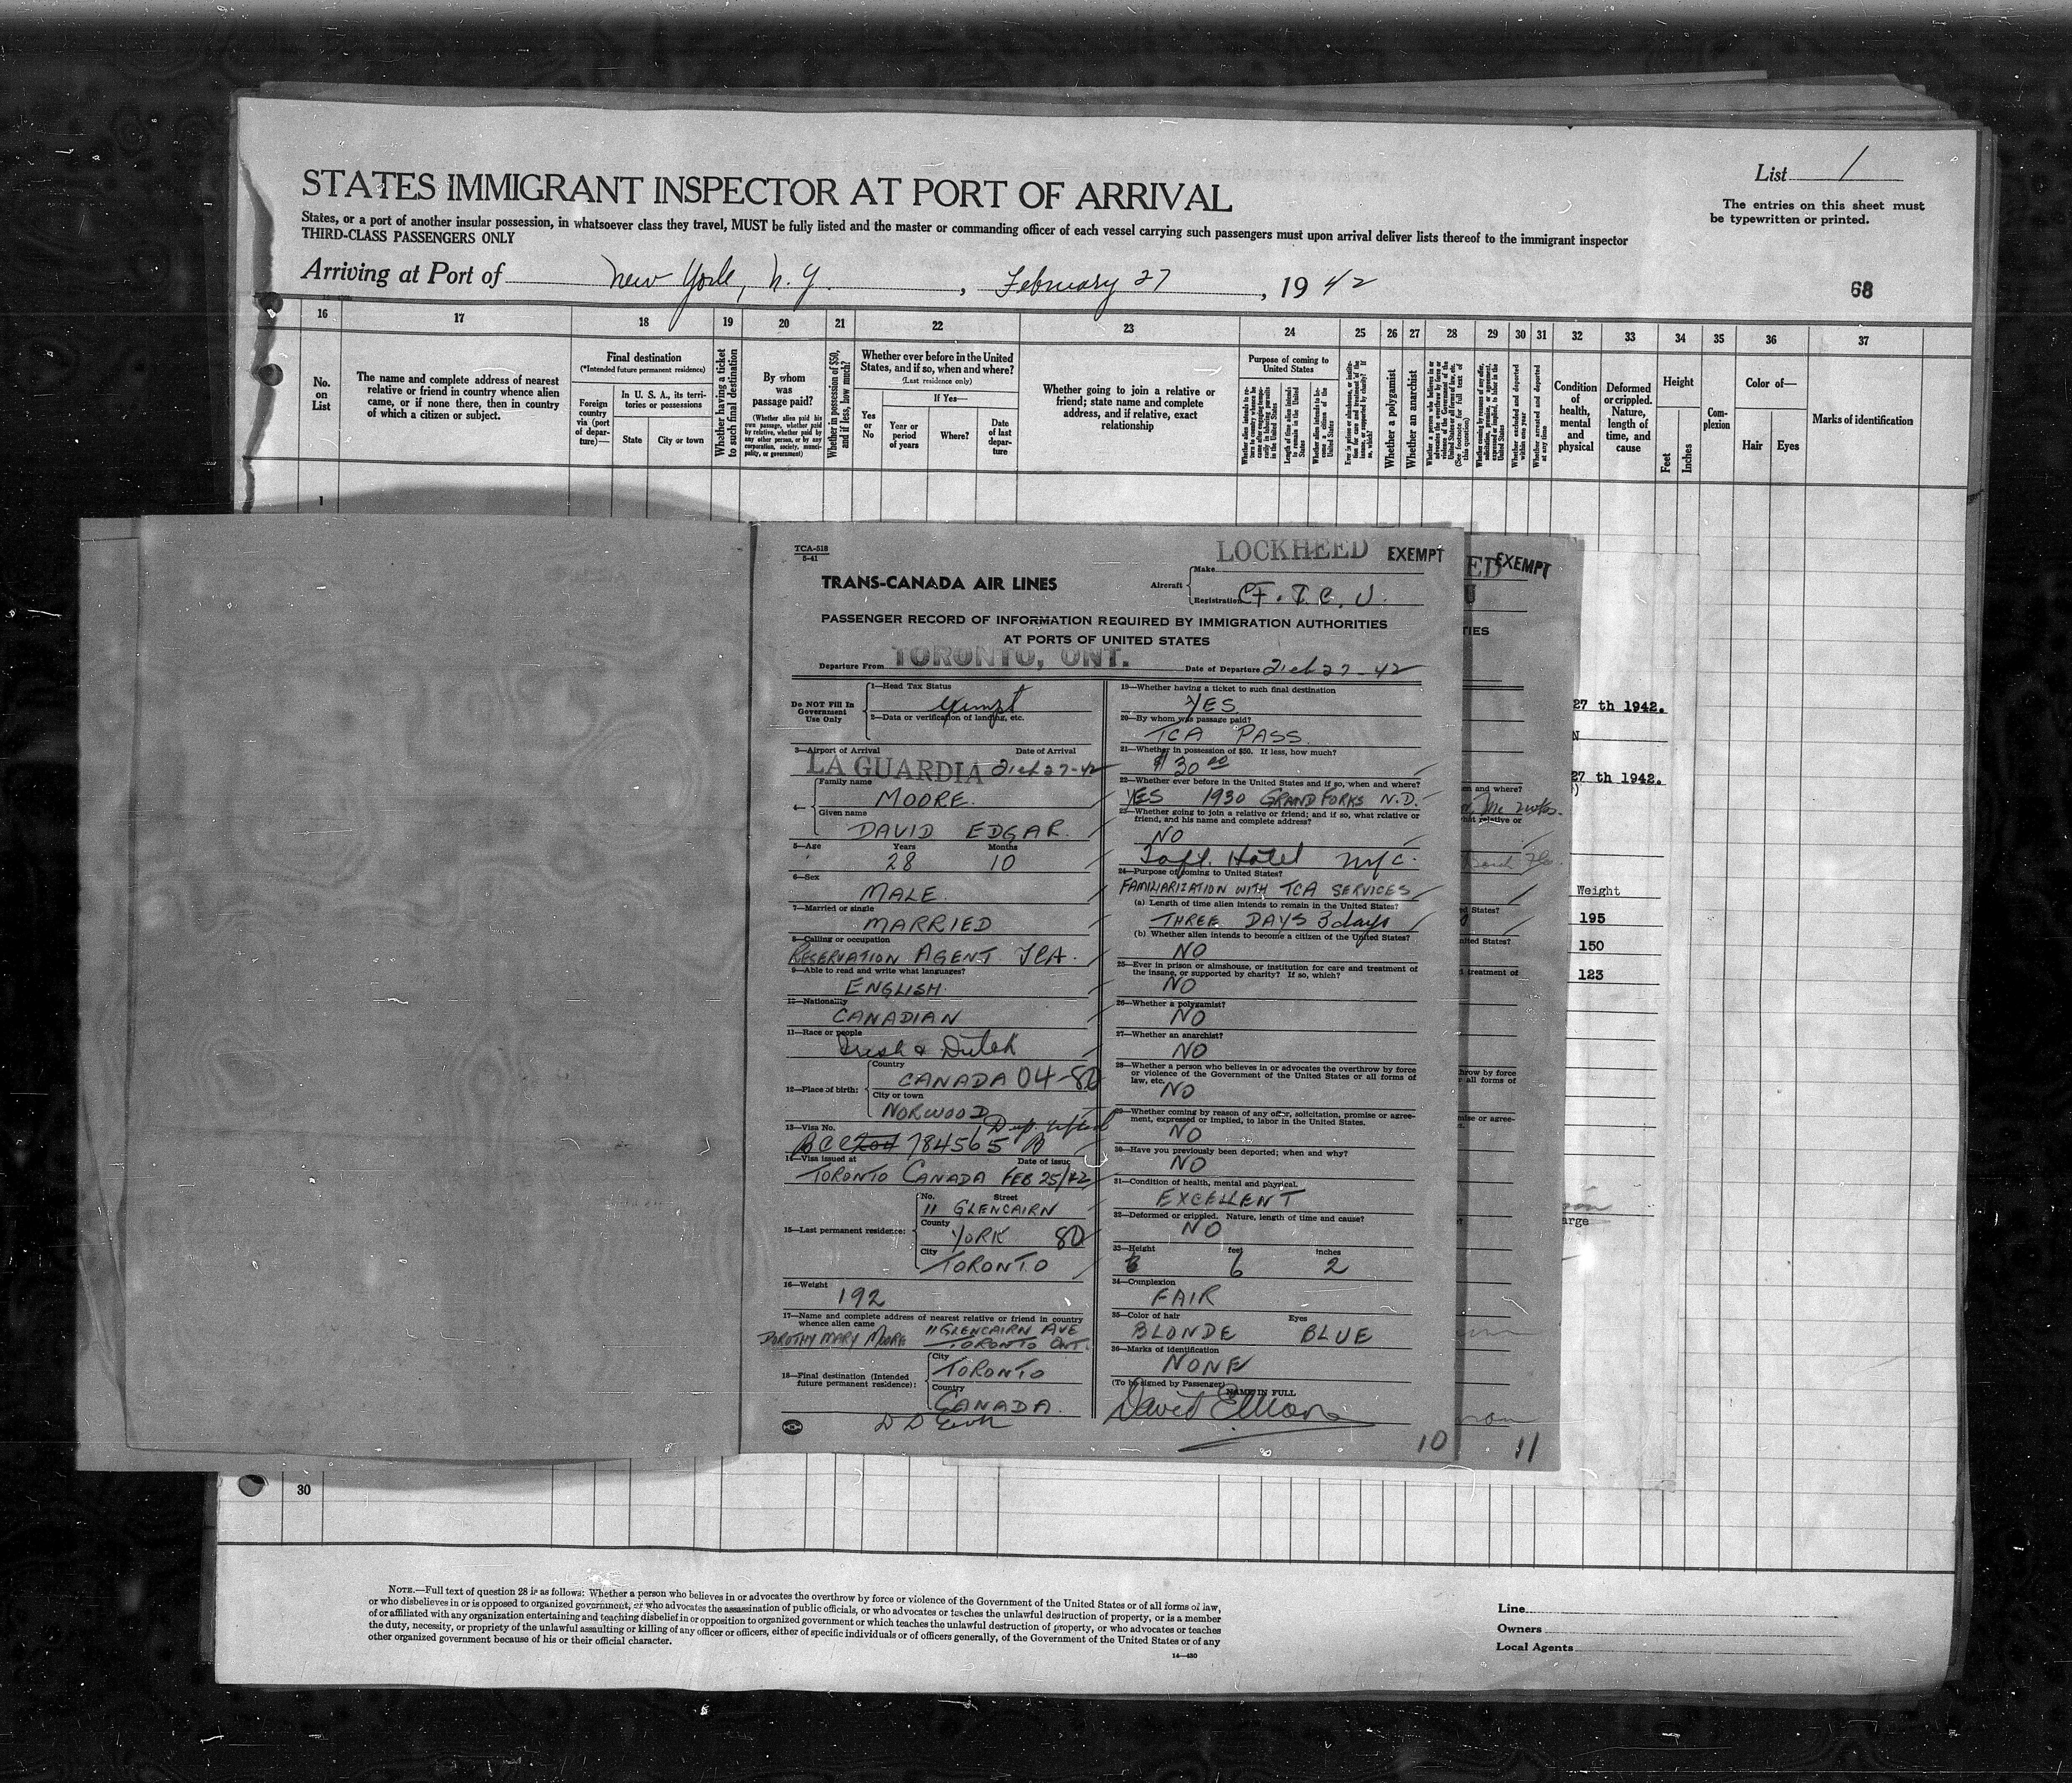 STATES IMMIGRANT INSPECTOR AT PORT OF ARRIVAL
List 1
The entries on this sheet must
be typewritten or printed.
States, or a port of another insular possession, in whatsoever class they travel, MUST be fully listed and the master or commanding officer of each vessel carrying such passengers must upon arrival deliver lists thereof to the immigrant inspector
THIRD-CLASS PASSENGERS ONLY
Arriving at Port of New York, N. Y. , February 27 , 19 42
68
16 17 18 19 20 21 22 23 24 25 26 27 28 29 30 31 32 33 34 35 36 37
No. on List
The name and complete address of nearest
relative or friend in country whence alien
came, or if none there, then in country
of which a citizen or subject.
Final destination
(*Intended future permanent residence)
Foreign country via (port of departure)—
In U. S. A., its territories or possessions
State
City or town
Whether having a ticket to such final destination
By whom was passage paid?
(Whether alien paid his own passage, whether paid by relative, whether paid by any other person, or by any corporation, society, municipality, or government)
Whether in possession of $50, and if less, how much?
Whether ever before in the United
States, and if so, when and where?
(Last residence only)
Yes or No
If Yes—
Year or period of years
Where?
Date of last departure
Whether going to join a relative or
friend; state name and complete
address, and if relative, exact
relationship
Purpose of coming to
United States
Whether a polygamist
Whether an anarchist
Condition of health, mental and physical
Deformed or crippled. Nature, length of time, and cause
Height
Feet
Inches
Complexion
Color of—
Hair
Eyes
Marks of identification
1
TCA-518
5-41
LOCKHEED
EXEMPT
TRANS-CANADA AIR LINES
Aircraft
Make
Registration CF. T. C. U.
PASSENGER RECORD OF INFORMATION REQUIRED BY IMMIGRATION AUTHORITIES
AT PORTS OF UNITED STATES
Departure From TORONTO, ONT.
Date of Departure Feb 27-42
Do NOT Fill In
Government
Use Only
1—Head Tax Status
Exempt
2—Data or verification of landing, etc.
3—Airport of Arrival Date of Arrival
LA GUARDIA Feb 27-42
4—
Family name
MOORE.
Given name
DAVID EDGAR.
5—Age Years Months
28 10
6—Sex
MALE.
7—Married or single
MARRIED
8—Calling or occupation
RESERVATION AGENT. TCA.
9—Able to read and write what languages?
ENGLISH.
10—Nationality
CANADIAN
11—Race or people
Irish & Dutch
12—Place of birth:
Country
CANADA 04-80
City or town
NORWOOD
13—Visa No.
BCC 784565
14—Visa issued at Date of issue
TORONTO CANADA FEB 25/42
15—Last permanent residence:
No. Street
11 GLENCAIRN
County
YORK 80
City
TORONTO
16—Weight
192
17—Name and complete address of nearest relative or friend in country
whence alien came
DOROTHY MARY MOORE 11 GLENCAIRN AVE
TORONTO ONT.
18—Final destination (Intended
future permanent residence):
City
TORONTO
Country
CANADA.
19—Whether having a ticket to such final destination
YES
20—By whom was passage paid?
TCA PASS
21—Whether in possession of $50. If less, how much?
$30 00
22—Whether ever before in the United States and if so, when and where?
YES 1930 GRAND FORKS N.D.
23—Whether going to join a relative or friend; and if so, what relative or
friend, and his name and complete address?
NO
Taft Hotel NYC.
24—Purpose of coming to United States?
FAMILIARIZATION WITH TCA SERVICES
(a) Length of time alien intends to remain in the United States?
THREE DAYS 3 days
(b) Whether alien intends to become a citizen of the United States?
NO
25—Ever in prison or almshouse, or institution for care and treatment of
the insane, or supported by charity? If so, which?
NO
26—Whether a polygamist?
NO
27—Whether an anarchist?
NO
28—Whether a person who believes in or advocates the overthrow by force
or violence of the Government of the United States or all forms of
law, etc.
NO
29—Whether coming by reason of any offer, solicitation, promise or agree-
ment, expressed or implied, to labor in the United States.
NO
30—Have you previously been deported; when and why?
NO
31—Condition of health, mental and physical.
EXCELLENT
32—Deformed or crippled. Nature, length of time and cause?
NO
33—Height feet inches
6 2
34—Complexion
FAIR
35—Color of hair Eyes
BLONDE BLUE
36—Marks of identification
NONE
(To be signed by Passenger) NAME IN FULL
David E Moore
10
ED EXEMPT
U
TIES
27 th 1942.
N
27 th 1942.
and where?
what relative or
Weight
195
150
123
ed States?
nited States?
treatment of
hrow by force
r all forms of
mise or agree-
arge
11
30
NOTE.—Full text of question 28 is as follows: Whether a person who believes in or advocates the overthrow by force or violence of the Government of the United States or of all forms of law,
or who disbelieves in or is opposed to organized government, or who advocates the assassination of public officials, or who advocates or teaches the unlawful destruction of property, or is a member
of or affiliated with any organization entertaining and teaching disbelief in or opposition to organized government or which teaches the unlawful destruction of property, or who advocates or teaches
the duty, necessity, or propriety of the unlawful assaulting or killing of any officer or officers, either of specific individuals or of officers generally, of the Government of the United States or of any
other organized government because of his or their official character.
14—430
Line
Owners
Local Agents